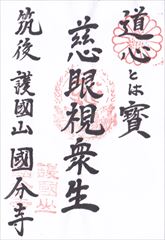 道心とは寳
慈眼視衆生
筑後 護國山 國分寺